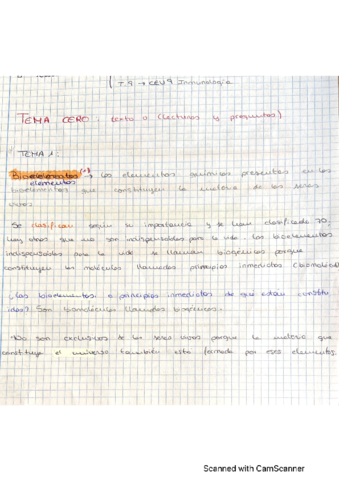 T.9 → CEU9 Inmunología
TEMA CERO: texto o (lecturas y preguntas)
TEMA 1:
Bioelementos (*) → los elementos químicos presentes en los
elementos
bioelementos que constituyen la materia de los seres
vivos
Se clasifican según su importancia y se han clasificado 70.
Hay otros que no son indispensables para la vida. Los bioelementos
indispensables para la vida se llaman biogénicos porque
constituyen las moléculas llamadas principios inmediatos (biomoléculas
¿Los bioelementos o principios inmediatos de qué están constitu
idos? Son biomoléculas llamadas
No son exclusivos de los seres vivos porque la materia que
constituye el universo también está formada por esos elementos.
Scanned with CamScanner